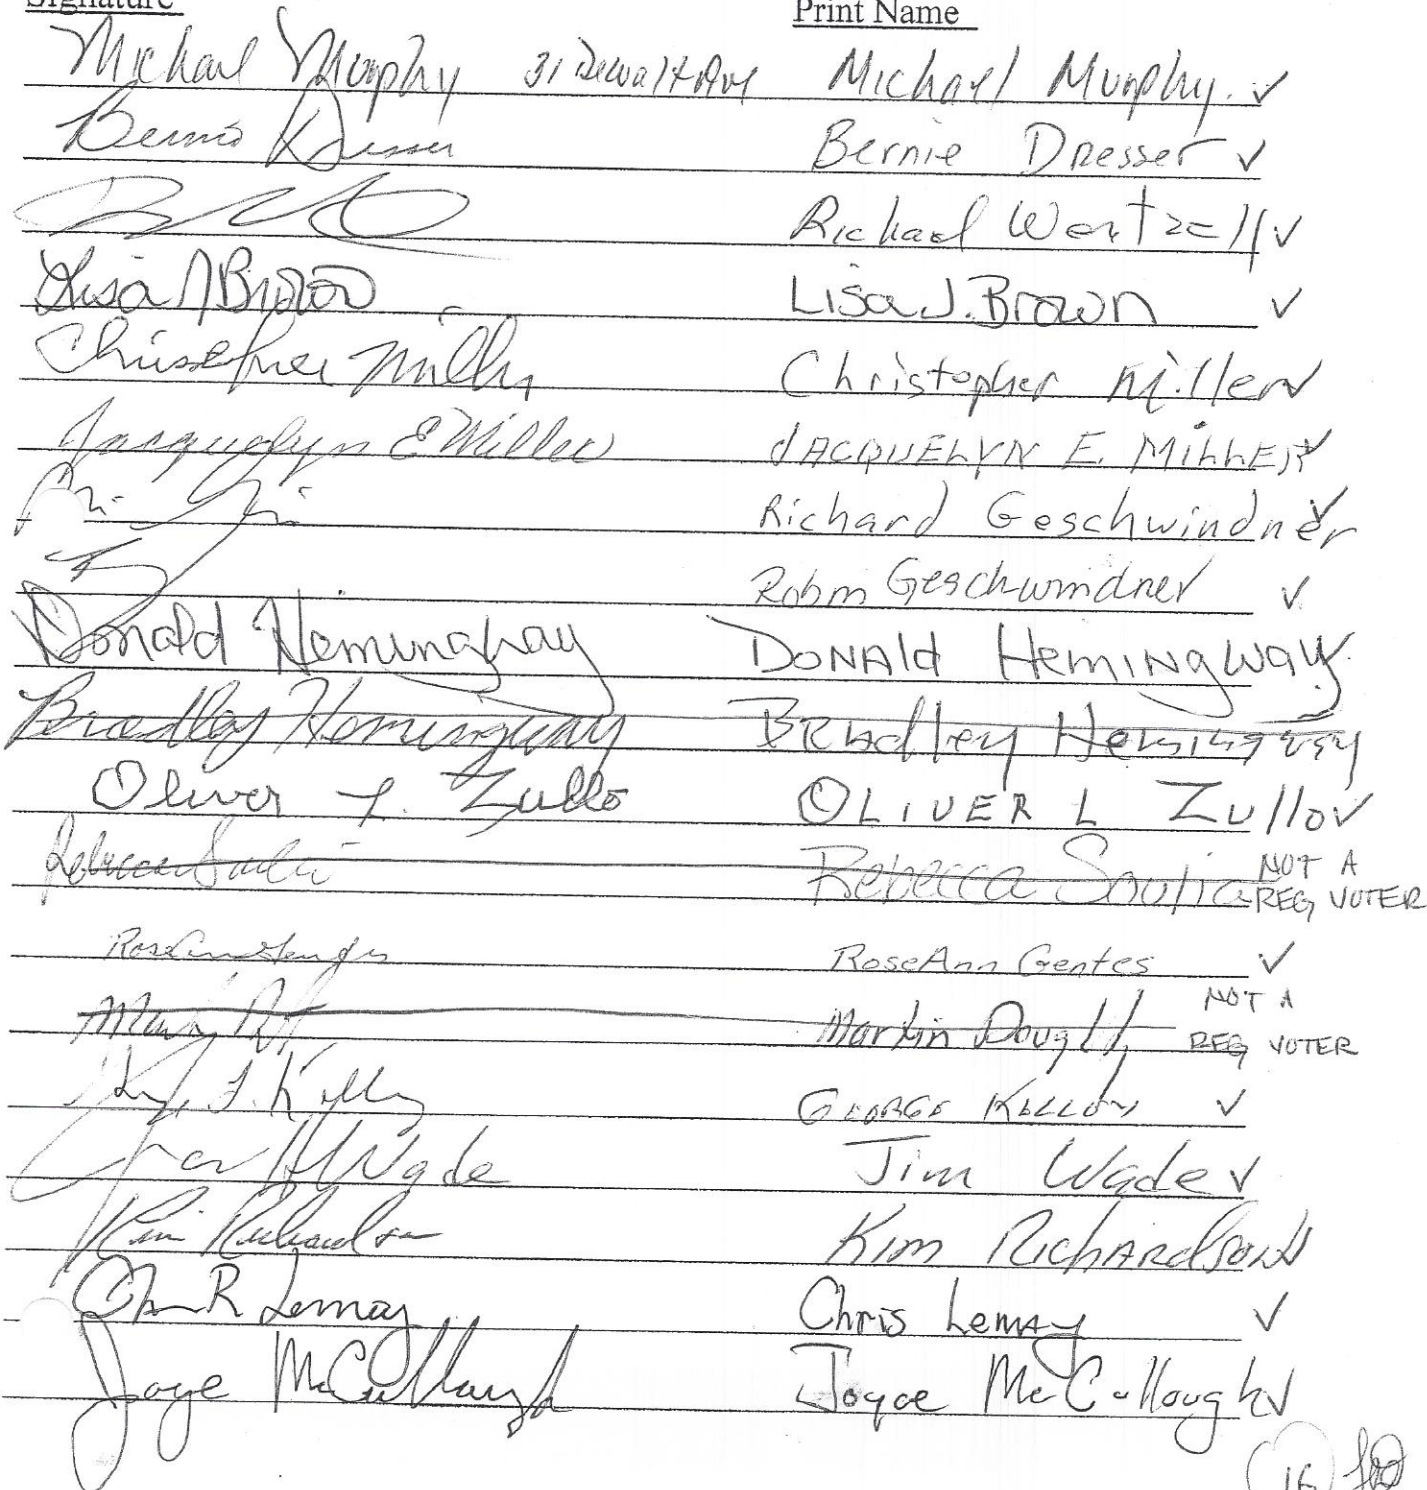 Signature Print Name
Michael Murphy 31 Dewalt Ave Michael Murphy. ✓
Bernie Dresser Bernie Dresser ✓
Richard ✓
Lisa J Brown Lisa J. Brown ✓
Christopher Miller Christopher Miller ✓
Jacquelyn E Miller JACQUELYN E. MILLER ✓
Richard Geschwindner ✓
Robin Geschwindner ✓
Donald Hemingway DONAld HemINgwAy
Bradley Hemingway BRAdley Hemingway
Oliver L. Zullo OLIVER L Zullo ✓
Rebecca Rebecca NOT A
REG VOTER
RoseAnn Gentes RoseAnn Gentes ✓
NOT A
Martin REG VOTER
GEORGE ✓
Wade Jim Wade ✓
Kim Richardson Kim RichARdsoN ✓
Chris R Lemay Chris LemAy ✓
Joyce McCullough Joyce McCullough ✓
16